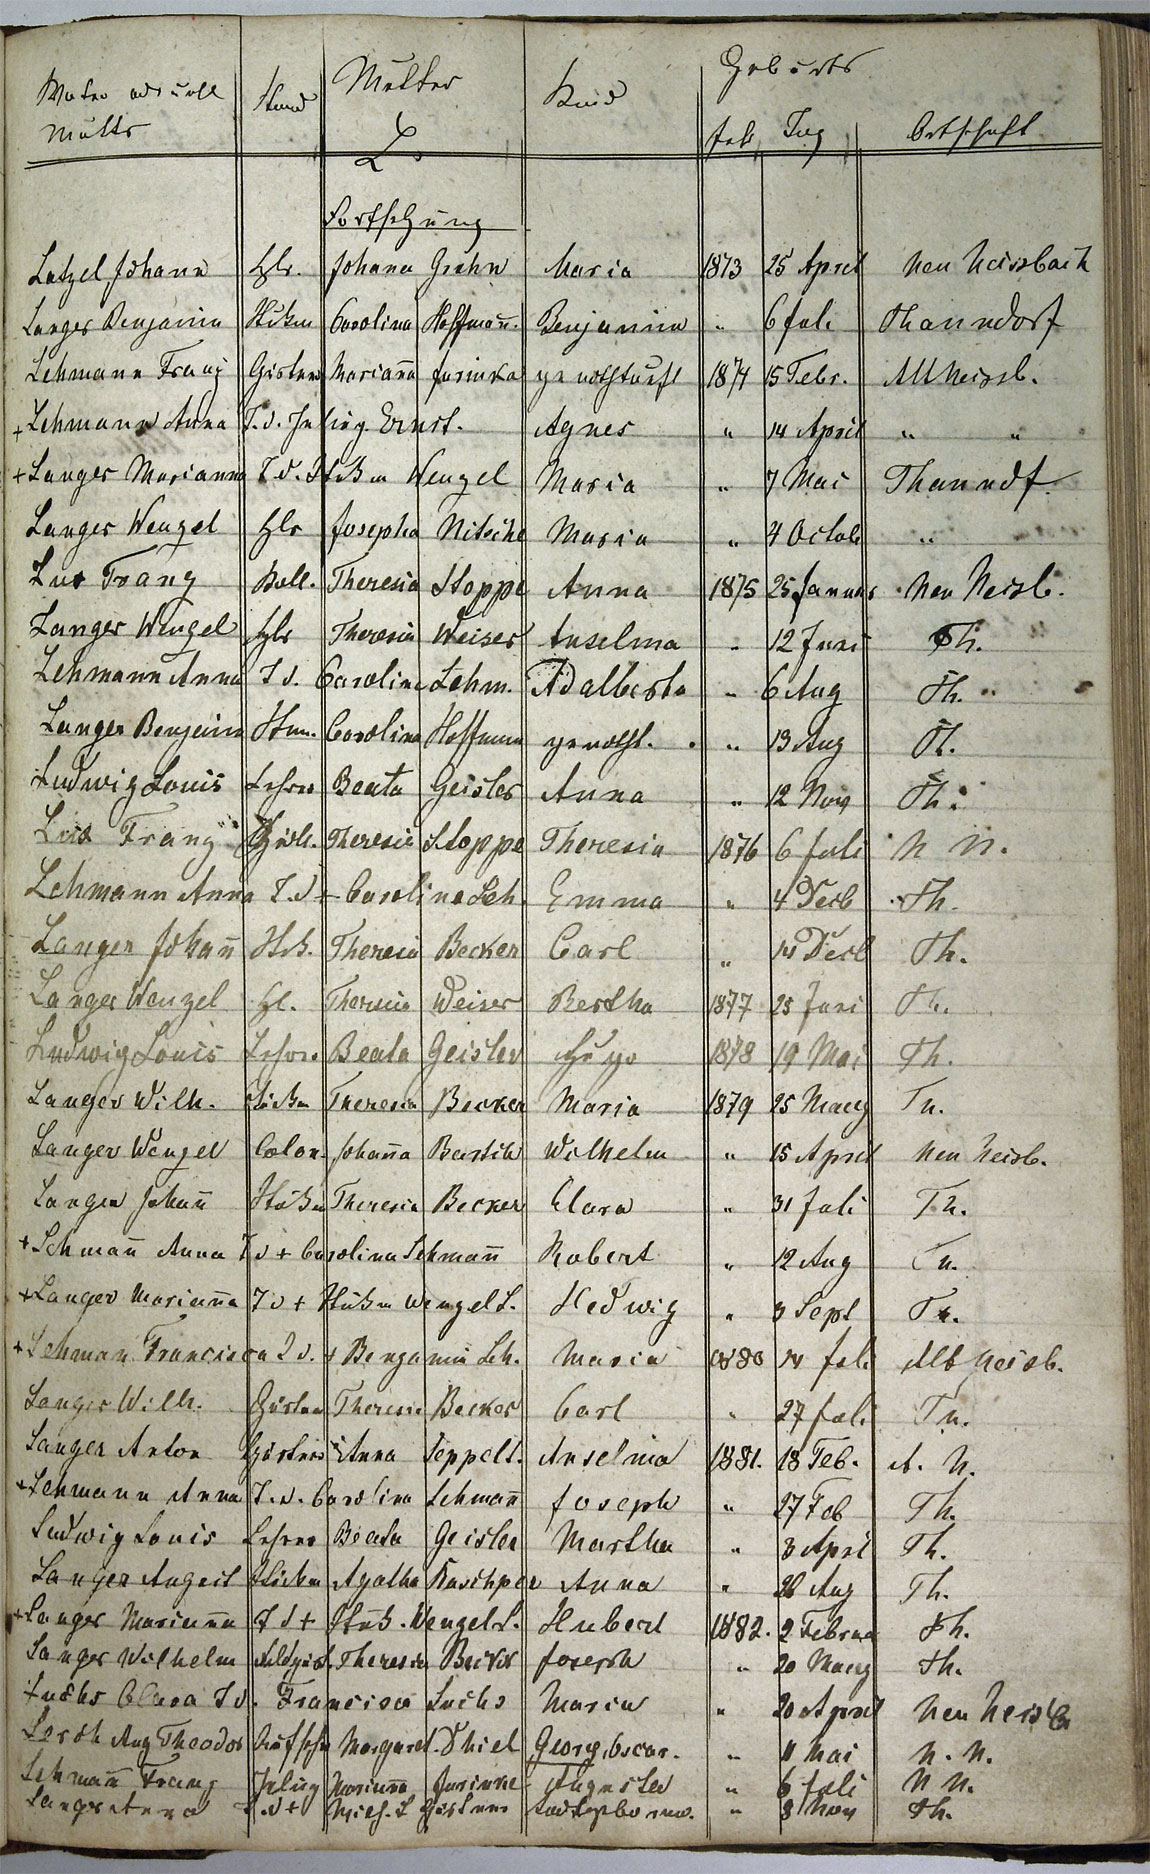 Stand Mutter Kind Geburts
Mutter L. Jahr Tag Ortschaft
Fortsetzung
Latzel Johann Hlr. Johana Grehn Maria 1873 25 April Neu Neissbach
Langer Benjamin Stükm Carolina Hoffmañ. Benjamin " 6 Juli Thanndorf
Lehmann Franz Gärtner Mariana Jurinka 1874 15 Febr. Alt Neissb.
+ Lehmann Anna T. d. Inlieg. Ernst. Agnes " 14 April " "
+ Langer Marianna T. d. Stükm Wenzel Maria " 7 Mai Thanndf.
Langer Wenzel Hlr Josepha Nitsche Maria " 4 Octob "
Franz Theresia Stoppe Anna 1875 25 Januar Neu Neisb.
Langer Wenzel Hlr Theresia Weiser Anselma " 12 Juni Th.
Lehmann Anna T d. Caroline Lehm. Adalberta " 6 Aug Th.
Langer Benjamin Stkm. Carolina Hoffmann " 13 Aug Th.
Ludwig Louis Lehrer Beata Geisler Anna " 12 Nov Th.
Franz Theresia Stoppe Theresia 1876 6 Juli N N.
Lehmann Anna T. d + Carolina Leh. Emma " 4 Decb Th.
Langer Johañ Stk. Theresia Becker Carl " 14 Decb Th.
Langer Wenzel Hl. Theresia Weiser Bertha 1877 25 Juni Th.
Ludwig Louis Lehrer Beata Geisler Hugo 1878 19 Mai Th.
Langer Wilh. Stükm Theresia Becker Maria 1879 25 Maerz Th.
Langer Wenzel Colon. Johañna Bartsch Wilhelm " 15 April Neu Neisb.
Langer Johañ Stükm Theresia Becker Clara " 31 Juli Th.
+ Lehmañ Anna T d + Carolina Lehmañ Robert " 12 Aug Th.
+ Langer Mariañna T d + Stükm Wenzel L. Hedwig " 3 Sept Th.
+ Lehman Francisca T d. + Benjamin Leh. Maria 1880 14 Juli Alt Neisb.
Langer Wilh. Gärtner Theresia Becker Carl " 27 Juli Th.
Langer Anton Gärtner Anna Seppelt. Anselma 1881. 18 Feb. A. N.
+ Lehmann Anna T. d. Carolina Lehmañ Joseph " 27 Feb Th.
Ludwig Louis Lehrer Beata Geisler Martha " 3 April Th.
Langer August Stükm Agatha Raschper Anna " 28 Aug Th.
+ Langer Mariañna T d + Stük. Wenzel L. Hubert 1882. 2 Februa Th.
Langer Wilhelm Theresia Becker Joseph " 20 Maerz Th.
Luchs Clara T d. Francisca Luchs Maria " 20 April Neu Neisb
Aug Theodor Margaret. Thiel Georg Oscar. " 11 Mai N. N.
Lehmañ Franz Inlieg Marianna Jurinke Augusta " 6 Juli N N.
Langer Anna T. d + L Gärtner " 8 Nov Th.